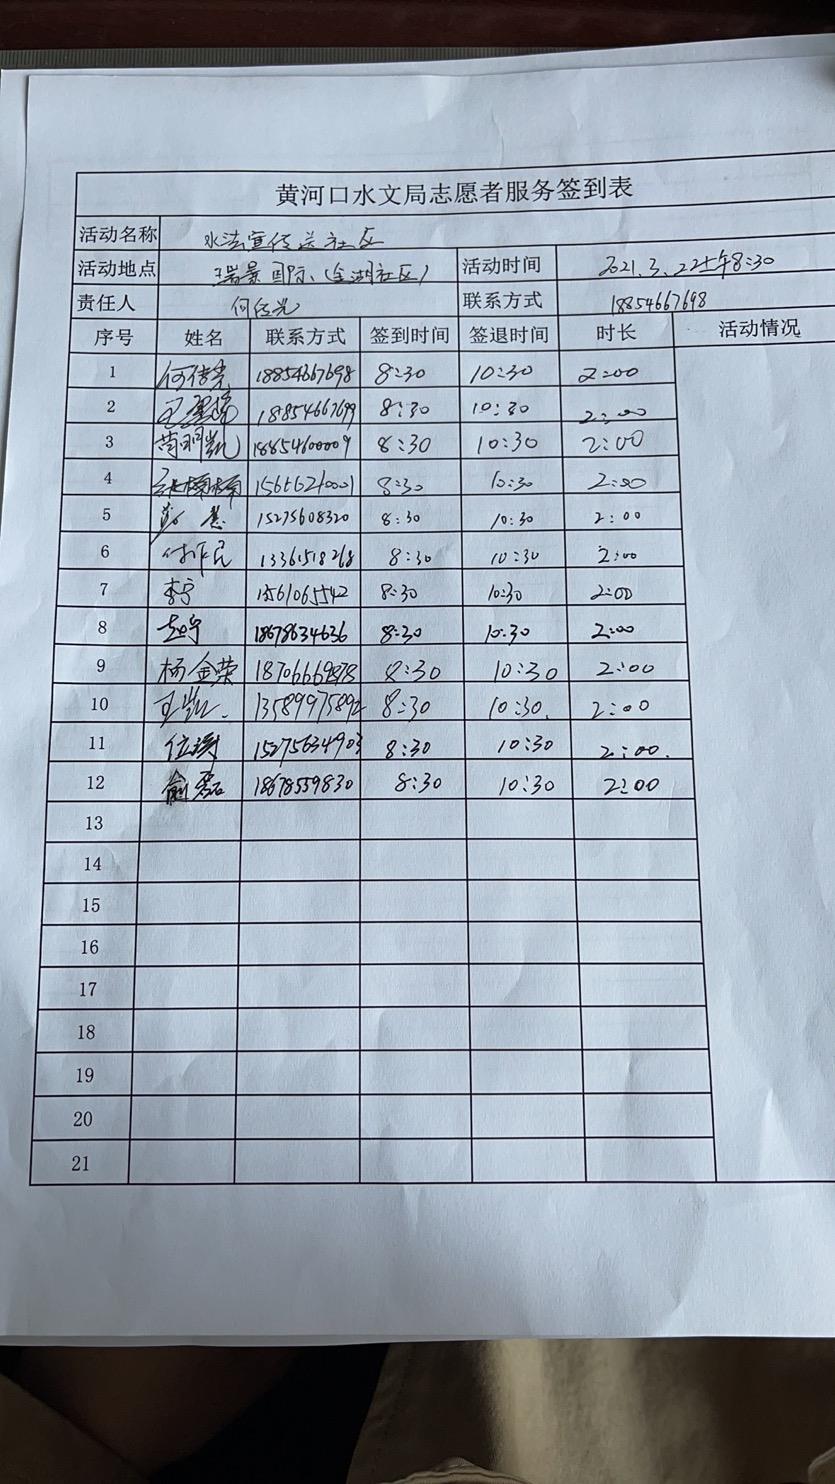 黄河口水文局志愿者服务签到表
活动名称 水法宣传进社区
活动地点 瑞景国际(金湖社区) 活动时间 2021.3.22上午8:30
责任人 何传光 联系方式 18854667698
序号 姓名 联系方式 签到时间 签退时间 时长 活动情况
1 何传光 18854667698 8:30 10:30 2:00
2 18854667699 8:30 10:30 2:00
3 苟明凯 18854600009 8:30 10:30 2:00
4 张楠楠 15656210001 8:30 10:30 2:00
5 15275608320 8:30 10:30 2:00
6 付作民 13361518268 8:30 10:30 2:00
7 李宁 1561065542 8:30 10:30 2:00
8 赵宁 18678634636 8:30 10:30 2:00
9 杨金荣 18706669878 8:30 10:30 2:00
10 王凯. 13589975892 8:30 10:30. 2:00
11 位瑛 15275634903 8:30 10:30 2:00.
12 俞磊 18678559830 8:30 10:30 2:00
13
14
15
16
17
18
19
20
21